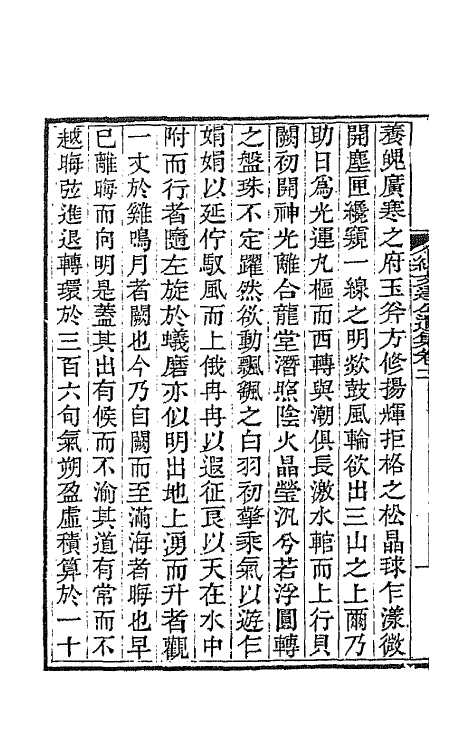 養魄廣寒之府玉斧方修揚輝拒格之松晶球乍漾微
開塵匣纔窺一線之明欻鼓風輪欲出三山之上爾乃
助日爲光運九樞而西轉與潮俱長激水輨而上行貝
闕初開神光離合龍堂潛照陰火晶瑩汎兮若浮圓轉
之盤珠不定躍然欲動飄颻之白羽初擎乘氣以遊乍
娟娟以延佇馭風而上俄冉冉以遐征良以天在水中
附而行者隨左旋於蟻磨亦似明出地上湧而升者觀
一丈於雞鳴月者闕也今乃自闕而至滿海者晦也早
已離晦而向明是蓋其出有候而不渝其道有常而不
越晦弦進退轉環於三百六旬氣朔盈虛積算於一十